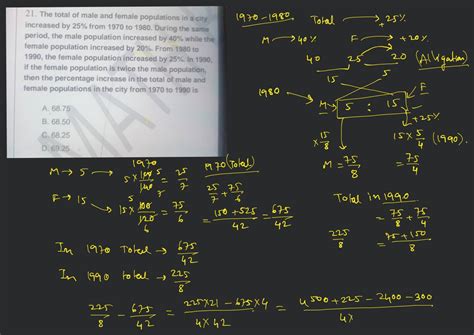 21. The total of male and female populations in a city
increased by 25% from 1970 to 1980. During the same
period, the male population increased by 40% while the
female population increased by 20%. From 1980 to
1990, the female population increased by 25%. In 1990,
if the female population is twice the male population,
then the percentage increase in the total of male and
female populations in the city from 1970 to 1990 is
A. 68.75
B. 68.50
C. 68.25
D. 69.25
1970-1980 Total → +25%
M → 40% F → +20%
40 25 20 (Alligation)
15 5
1980 →
M → 5 : 15 → F
+25%
× 15/8 15 × 5/4 (1990).
M = 75/8 = 75/4
1970 1970 (Total)
M → 5 → 5 × 100/140 = 25/7
F → 15 → 15 × 100/120 = 75/6
25/7 + 75/6
= 150 + 525/42 = 675/42
Total in 1990
= 75/8 + 75/4
225/8 = 75 + 150/8
In 1970 Total → 675/42
In 1990 total → 225/8
225/8 - 675/42 = 225×21 - 675×4/4×42 = 4500 + 225 - 2400 - 300/4×